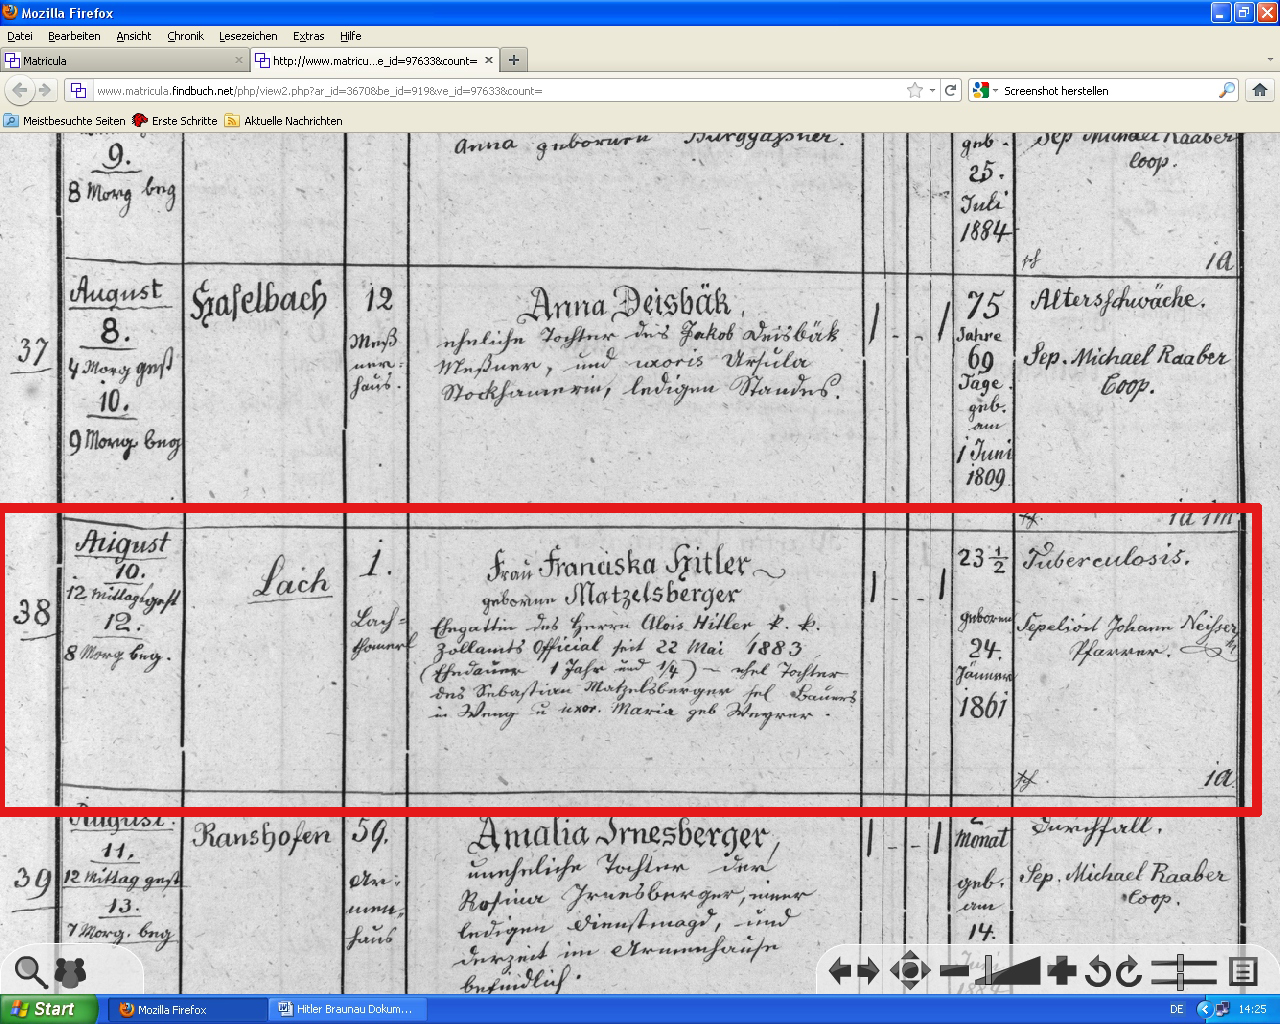 Mozilla Firefox
Datei Bearbeiten Ansicht Chronik Lesezeichen Extras Hilfe
Matricula
http://www.matricu...e_id=97633&count=
www.matricula.findbuch.net/php/view2.php?ar_id=3670&be_id=919&ve_id=97633&count=
Screenshot herstellen
Meistbesuchte Seiten Erste Schritte Aktuelle Nachrichten
9.
8 Morg beg
Anna gebornen Burggassner.
geb.
25.
Juli
1884
Sep Michael Raaber
Coop.
ia
37
August
8.
4 Morg gest
10.
9 Morg beg
Haselbach
12
Meß
ner-
haus.
Anna Deisbäk,
eheliche Tochter des Jakob Deisbäk
Meßner, und uxoris Ursula
Stockhamerin, ledigen Standes.
1 - - 1
75
Jahre
69
Tage.
geb.
am
1 Juni
1809
Altersschwäche.
Sep. Michael Raaber
Coop.
ia im
38
August
10.
12 Mittags gest
12.
8 Morg beg.
Lach
1.
Lach=
Frau Franciska Hitler
geborne Matzelsberger
Ehegattin des Herrn Alois Hitler k. k.
Zollamts Official seit 22 Mai 1883
(Ehedauer 1 Jahr und 1/4) – ehel Tochter
des Sebastian Matzelsberger sel Bauers
in Weng u uxor. Maria geb
1 - - 1
23 1/2
geboren
24.
Jänner
1861
Tuberculosis.
Sepelivit Johann
Pfarrer.
ia
39
August.
11.
12 Mittag gest
13.
7 Morg. beg
Ranshofen
59.
Ar-
men-
haus
Amalia Irnesberger,
uneheliche Tochter der
Rosina Irnesberger, einer
ledigen Dienstmagd, und
derzeit im Armenhause
befindlich.
1 - - 1
2
Monat
geb.
am
14.
Juni
1884
Durchfall.
Sep. Michael Raaber
Coop.
Start
Mozilla Firefox
Hitler Braunau Dokum...
DE
14:25